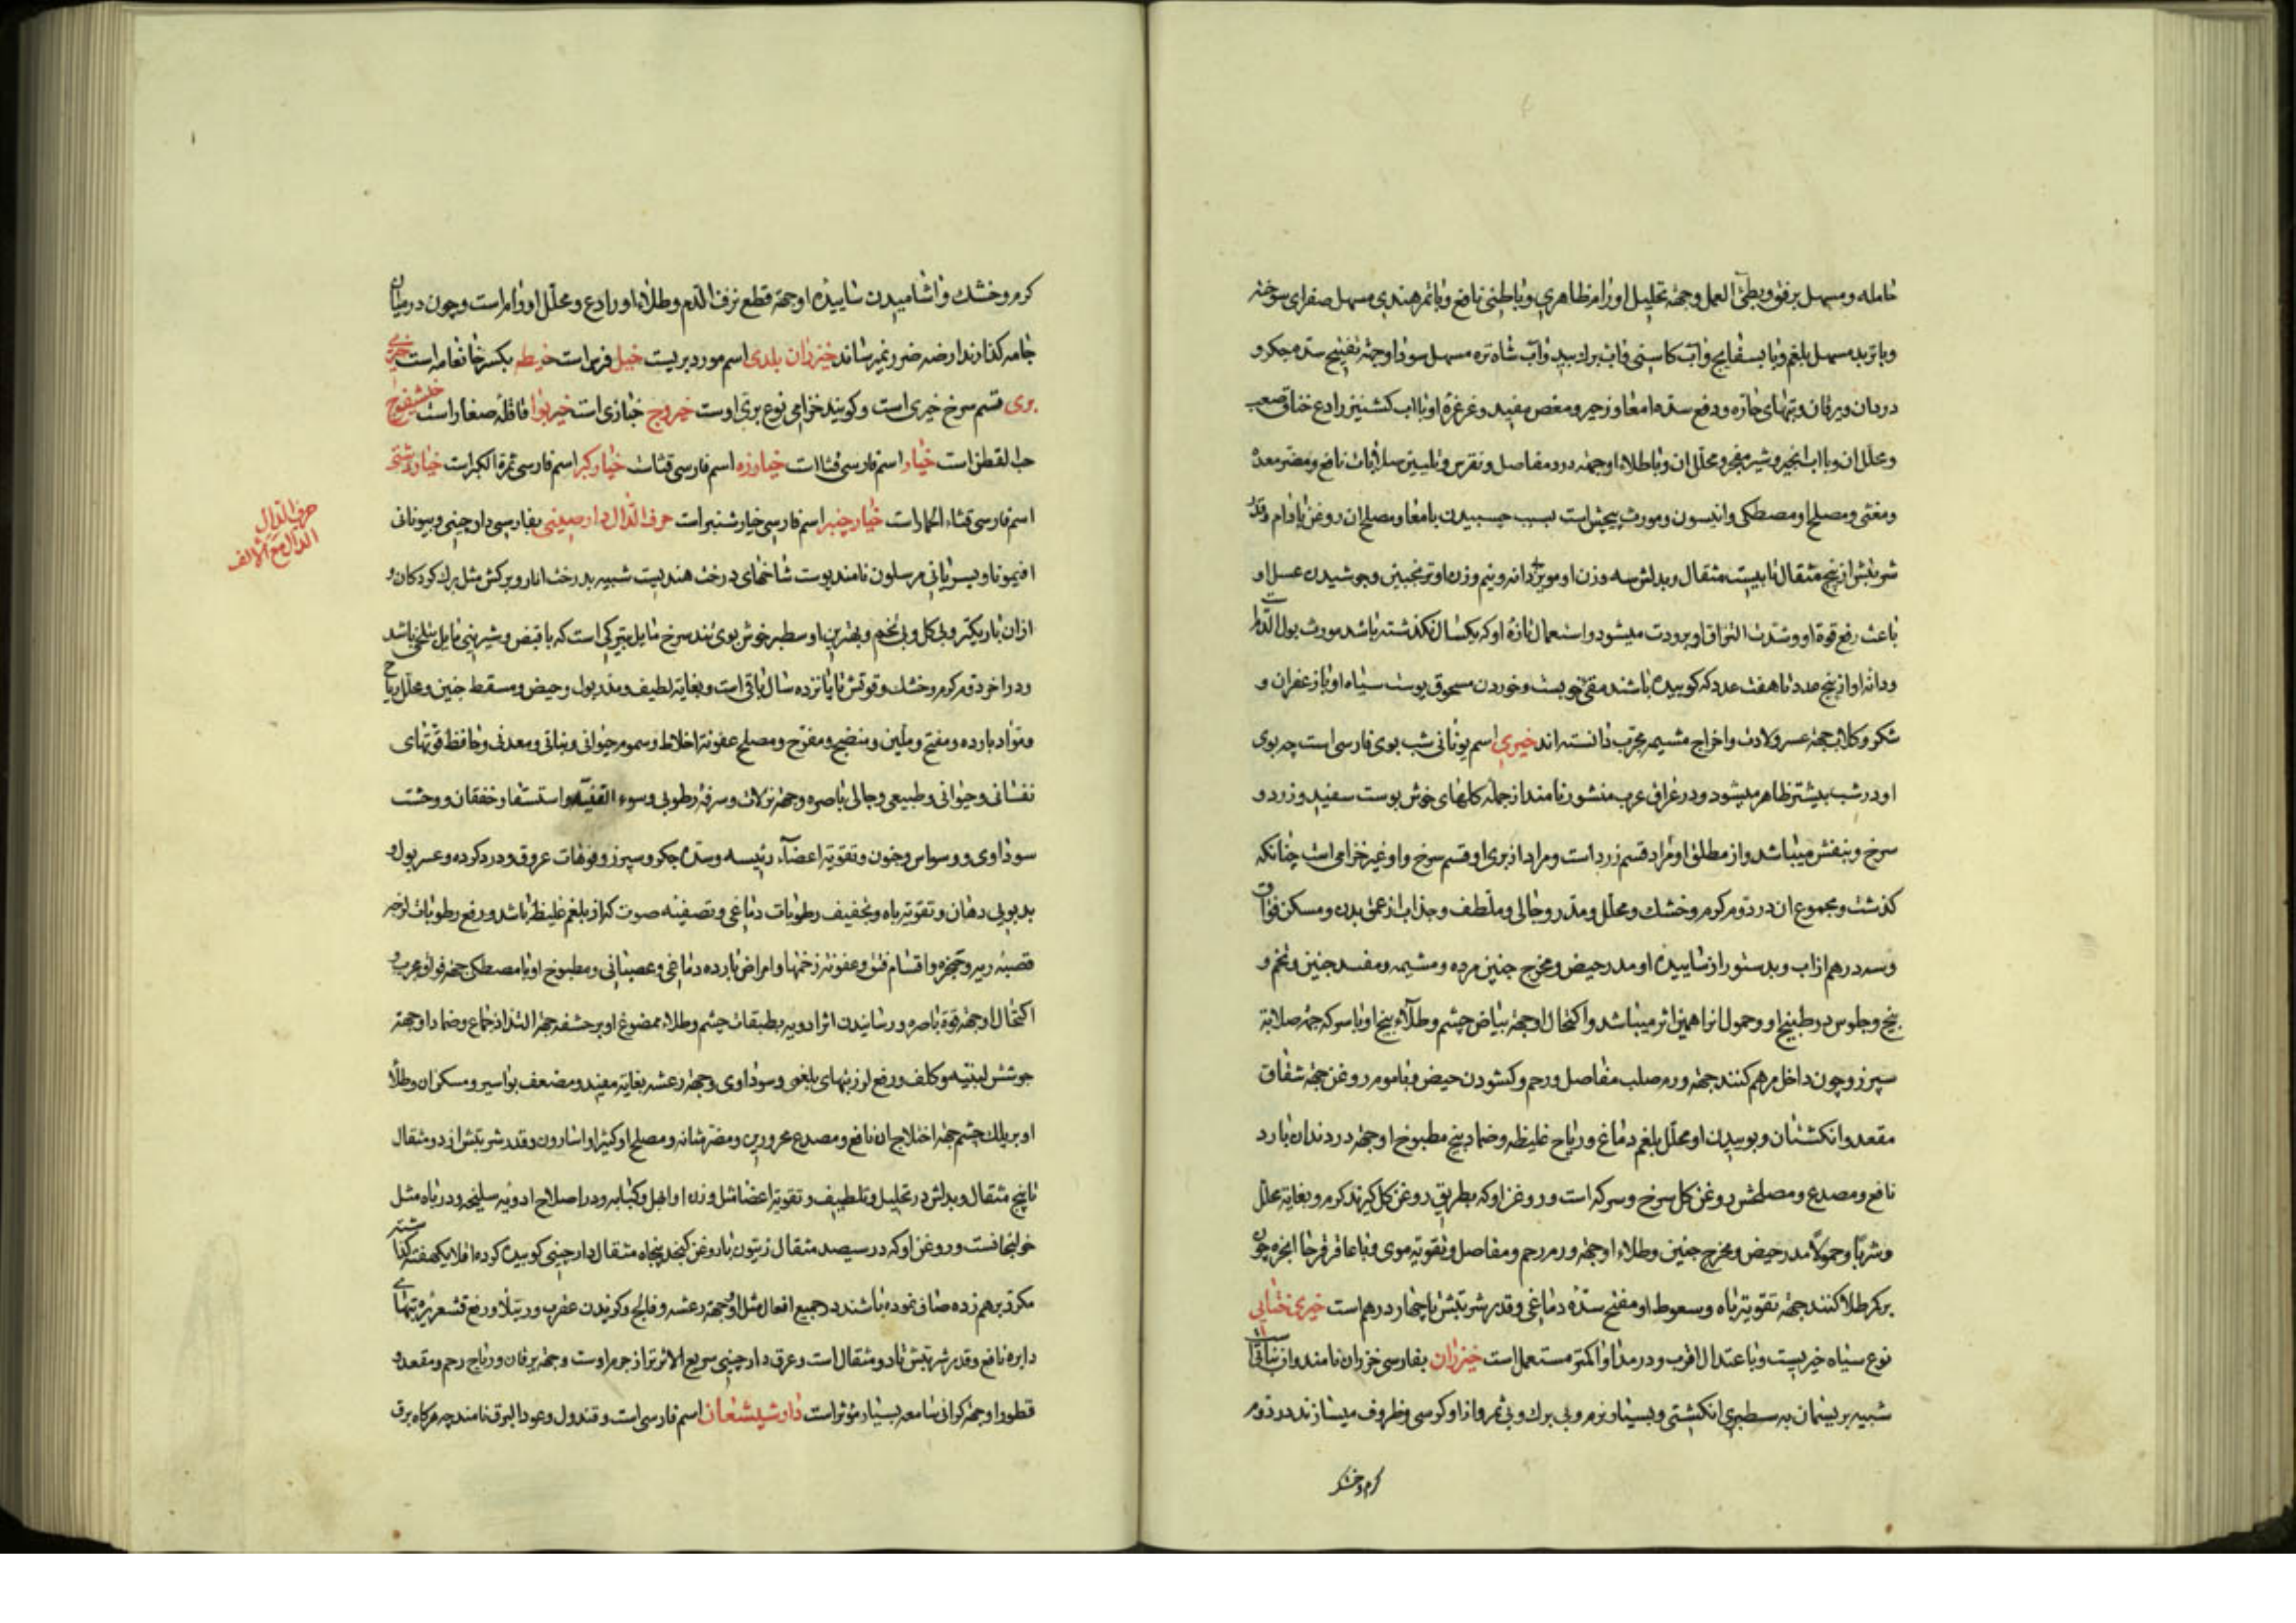 حامله و مسهل برفق و بطئ العمل و جهة تحلیل اورام ظاهری و باطنی نافع و با تمر هندی مسهل صفرای سوخته
و با تربد مسهل بلغم و با بسفایج و آب کاسنی و آب برک بید و آب شاه تره مسهل سودا و جهة تفتیح سده جکر و
درد ان و یرقان و تبهای حاره و دفع سده امعا و زحیر و مغص مفید و غرغرة او با آب کشنیز رادع خناق صعب
و محلل ان و با آب انجیر و شیر مفجر و محلل ان و با طلاء او جهة درد مفاصل و نقرس و تلیین صلابات نافع و مضر معده
و مغثی و مصلح او مصطکی و انیسون و مورث پیچش است بسبب چسبیدن بامعا و مصلح ان روغن بادام و قدر
شربتش از پنج مثقال تا بیست مثقال و بدلش سه وزن او مویز دانه و نیم وزن او ترنجبین و جوشیدن عسل او
باعث رفع قوة او و شدت التزاق او برودت میشود و استعمال تازه او که یکسال نکذشته باشد مورث بول الدم
و دانه او از پنج عدد تا هفت عدد که کوبیده باشند مقئ خوبیست و خوردن مسحوق پوست سیاه او با زعفران و
شکر و کلاب جهة عسر ولادت و اخراج مشیمه مجرب دانسته اند خیری اسم یونانی شب بوی فارسی است چه بوی
او در شب بیشتر ظاهر میشود و در عراق عرب منشور نامند از جمله کلهای خوش بوست سفید و زرد و
سرخ و بنفش میباشد و از مطلق او مراد قسم زرد است و مراد از بری او قسم سرخ و او غیر خزامی است چنانکه
کذشت و مجموع ان در دوم کرم و خشک و محلل و مدر و جالی و ملطف و جذاب از عمق بدن و مسکن فواق
و سه درهم از آب و بدستور از ساییده او مدر حیض و مخرج جنین مرده و مشیمه و مفسد جنین و تخم و
بیخ و جلوس در طبیخ او و حمول انرا همین اثر میباشد و اکتحال او جهة بیاض چشم و طلاء بیخ او با سرکه جهة صلابة
سپرز و چون داخل مرهم کنند جهة ورم صلب مفاصل و رحم و کشودن حیض و با موم روغن جهة شقاق
مقعد و انکشتان و بوییدن او محلل بلغم دماغ و ریاح غلیظه و ضماد بیخ مطبوخ او جهة درد دندان بارد
نافع و مصدع و مصلحش روغن کل سرخ و سرکه است و روغن او که بطریق روغن کل کیرند کرم و بغایة محلل
و شربا و حمولا مدر حیض و مخرج جنین و طلاء او جهة ورم رحم و مفاصل و تقویة موی و با عاقرقرحا انجره چون
بر کمر طلا کنند جهة تقویة باه و سعوط او مفتح سده دماغی و قدر شربتش تا چهار درهم است خیری ختایی
نوع سیاه خیریست و با عتدال اقرب و در مداوا کمتر مستعمل است خیزران بفارسی خزران نامند و ان نباتی است
شبیه بریسمان به سطبری انکشتی و بسیار نرم و بی برک و بی ثمر و از او کرسی و ظروف میسازند در دوم
کرم و خشک
کرم و خشک و آشامیدن ساییده او جهة قطع نزف الدم و طلاء او رادع و محلل اورام است و چون در میان
جامه کذارند ارضه ضرر نمیرساند خیزران بلدی اسم مورد بریست خیل فرس است خیطه بکسر خا نعامه است خیری
بری قسم سرخ خیری است و کویند خزامی نوع بری اوست خیروج خبازی است خیربوا قاقله صغار است خیشفوج
حب القطن است خیار اسم فارسی قثا است خیارزه اسم فارسی قثاست خیار کبر اسم فارسی ثمرة الکبر است خیار دشتی
اسم فارسی قثاء الحمار است خیار چنبر اسم فارسی خیار شنبر است حرف الدال دارصینی بفارسی دارچینی و بیونانی
افیمونا و بسریانی مرسلون نامند پوست شاخهای درخت هندیست شبیه بدرخت انار و برکش مثل برک کردکان و
ازان باریکتر و بی کل و بی تخم و بهترین او سطبر خوش بوی تند سرخ مایل بتیرکی است که با قبض و شیرینی مایل بتلخی باشد
و در اخر دوم کرم و خشک و قوتش تا پانزده سال باقی است و بغایة لطیف و مدر بول و حیض و مسقط جنین و محلل ریاح
و مواد بارده و مفتح و ملین و منضج و مفرح و مصلح عفونة اخلاط و سموم حیوانی و نباتی و معدنی و حافظ قوتهای
نفسانی و حیوانی و طبیعی و جالی باصره و جهة نزلات و سرفه رطوبی و سوء القنیه و استسقا و خفقان و وحشت
سوداوی و وسواس و جنون و تقویة اعضاء رئیسه و سده جکر و سپرز و فوهات عروق و درد کرده و عسر بول و
بدبویی دهان و تقویة باه و تجفیف رطوبات دماغی و تصفیه صوت که از بلغم غلیظ باشد و رفع رطوبات لزجه
قصبه ریه و حنجره و اقسام فتق و عفونة زخمها و امراض بارده دماغی و عصبانی و مطبوخ او با مصطکی جهة فواق مجرب و
اکتحال او جهة قوة باصره و رسانیدن اثر ادویه بطبقات چشم و طلاء ممضوغ او بر حشفه جهة التذاذ جماع و ضماد او جهة
جوشش لبنیه و کلف و رفع لرز تبهای بلغمی و سوداوی و جهة رعشه بغایة مفید و مضعف بواسیر و مسکن ان و طلاء
او بر پلک چشم جهة اختلاج ان نافع و مصدع محرورین و مضر مثانه و مصلح او کتیرا و اسارون و قدر شربتش از دو مثقال
تا پنج مثقال و بدلش در تحلیل و تلطیف و تقویة اعضا مثل وزن او ابهل و کبابه و در اصلاح ادویه سلیخه و در باه مثل
خولنجانست و روغن او که در سیصد مثقال زیتون یا روغن کنجد پنجاه مثقال دارچینی کوبیده کرده اقلا یکهفته کذاشته
مکرر بر هم زده صاف نموده باشند در جمیع افعال مثل او و جهة رعشه و فالج و کزیدن عقرب و رتیلا و رفع قشعریره تبهای
دایره نافع و قدر شربتش تا دو مثقال است و عرق دارچینی سریع الاثر تر از جرم اوست و جهة یرقان و ریاح رحم و مقعد و
قطور او جهة کرانی سامعه بسیار مؤثر است دارشیشعان اسم فارسی است و قندول و عود البرق نامند چه هرکاه برق
حرف الدال
الدال مع الالف